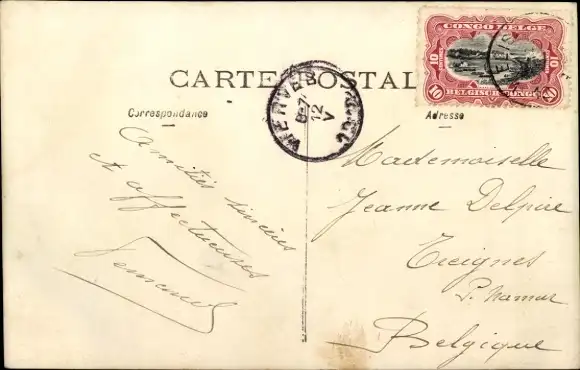 CONGO BELGE
10 10
10 10
BELGISCH CONGO
CARTE POSTALE
8-7
12
V
Correspondance
Adresse
Amitiés sincères
et affectueuses
Fernand
Mademoiselle
Jeanne Delpire
Treignes
P. Namur
Belgique